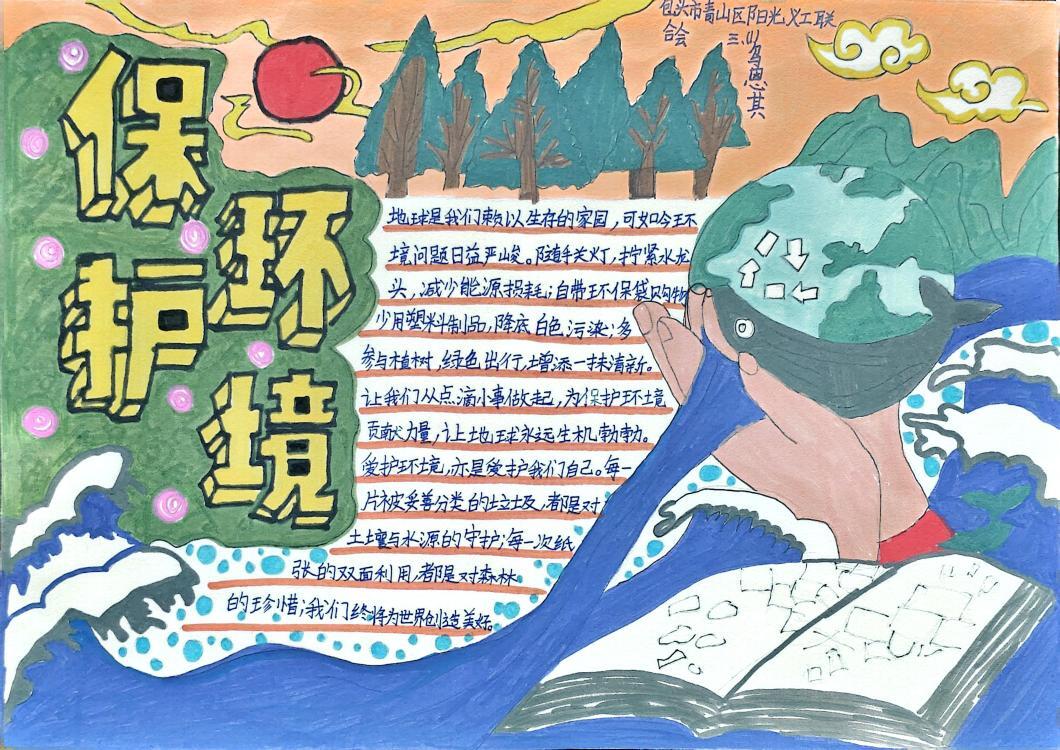 保护
环境
包头市青山区阳光义工联
合会
三.(1)
乌恩其
地球是我们赖以生存的家园,可如今环
境问题日益严峻。随手关灯,拧紧水龙
头,减少能源损耗;自带环保袋购物
少用塑料制品,降底白色污染;多
参与植树,绿色出行,增添一抹清新。
让我们从点滴小事做起,为保护环境
贡献力量,让地球永远生机勃勃。
爱护环境,亦是爱护我们自己。每一
片被妥善分类的垃圾,都是对
土壤与水源的守护;每一次纸
张的双面利用,都是对森林
的珍惜;我们终将为世界创造美好。